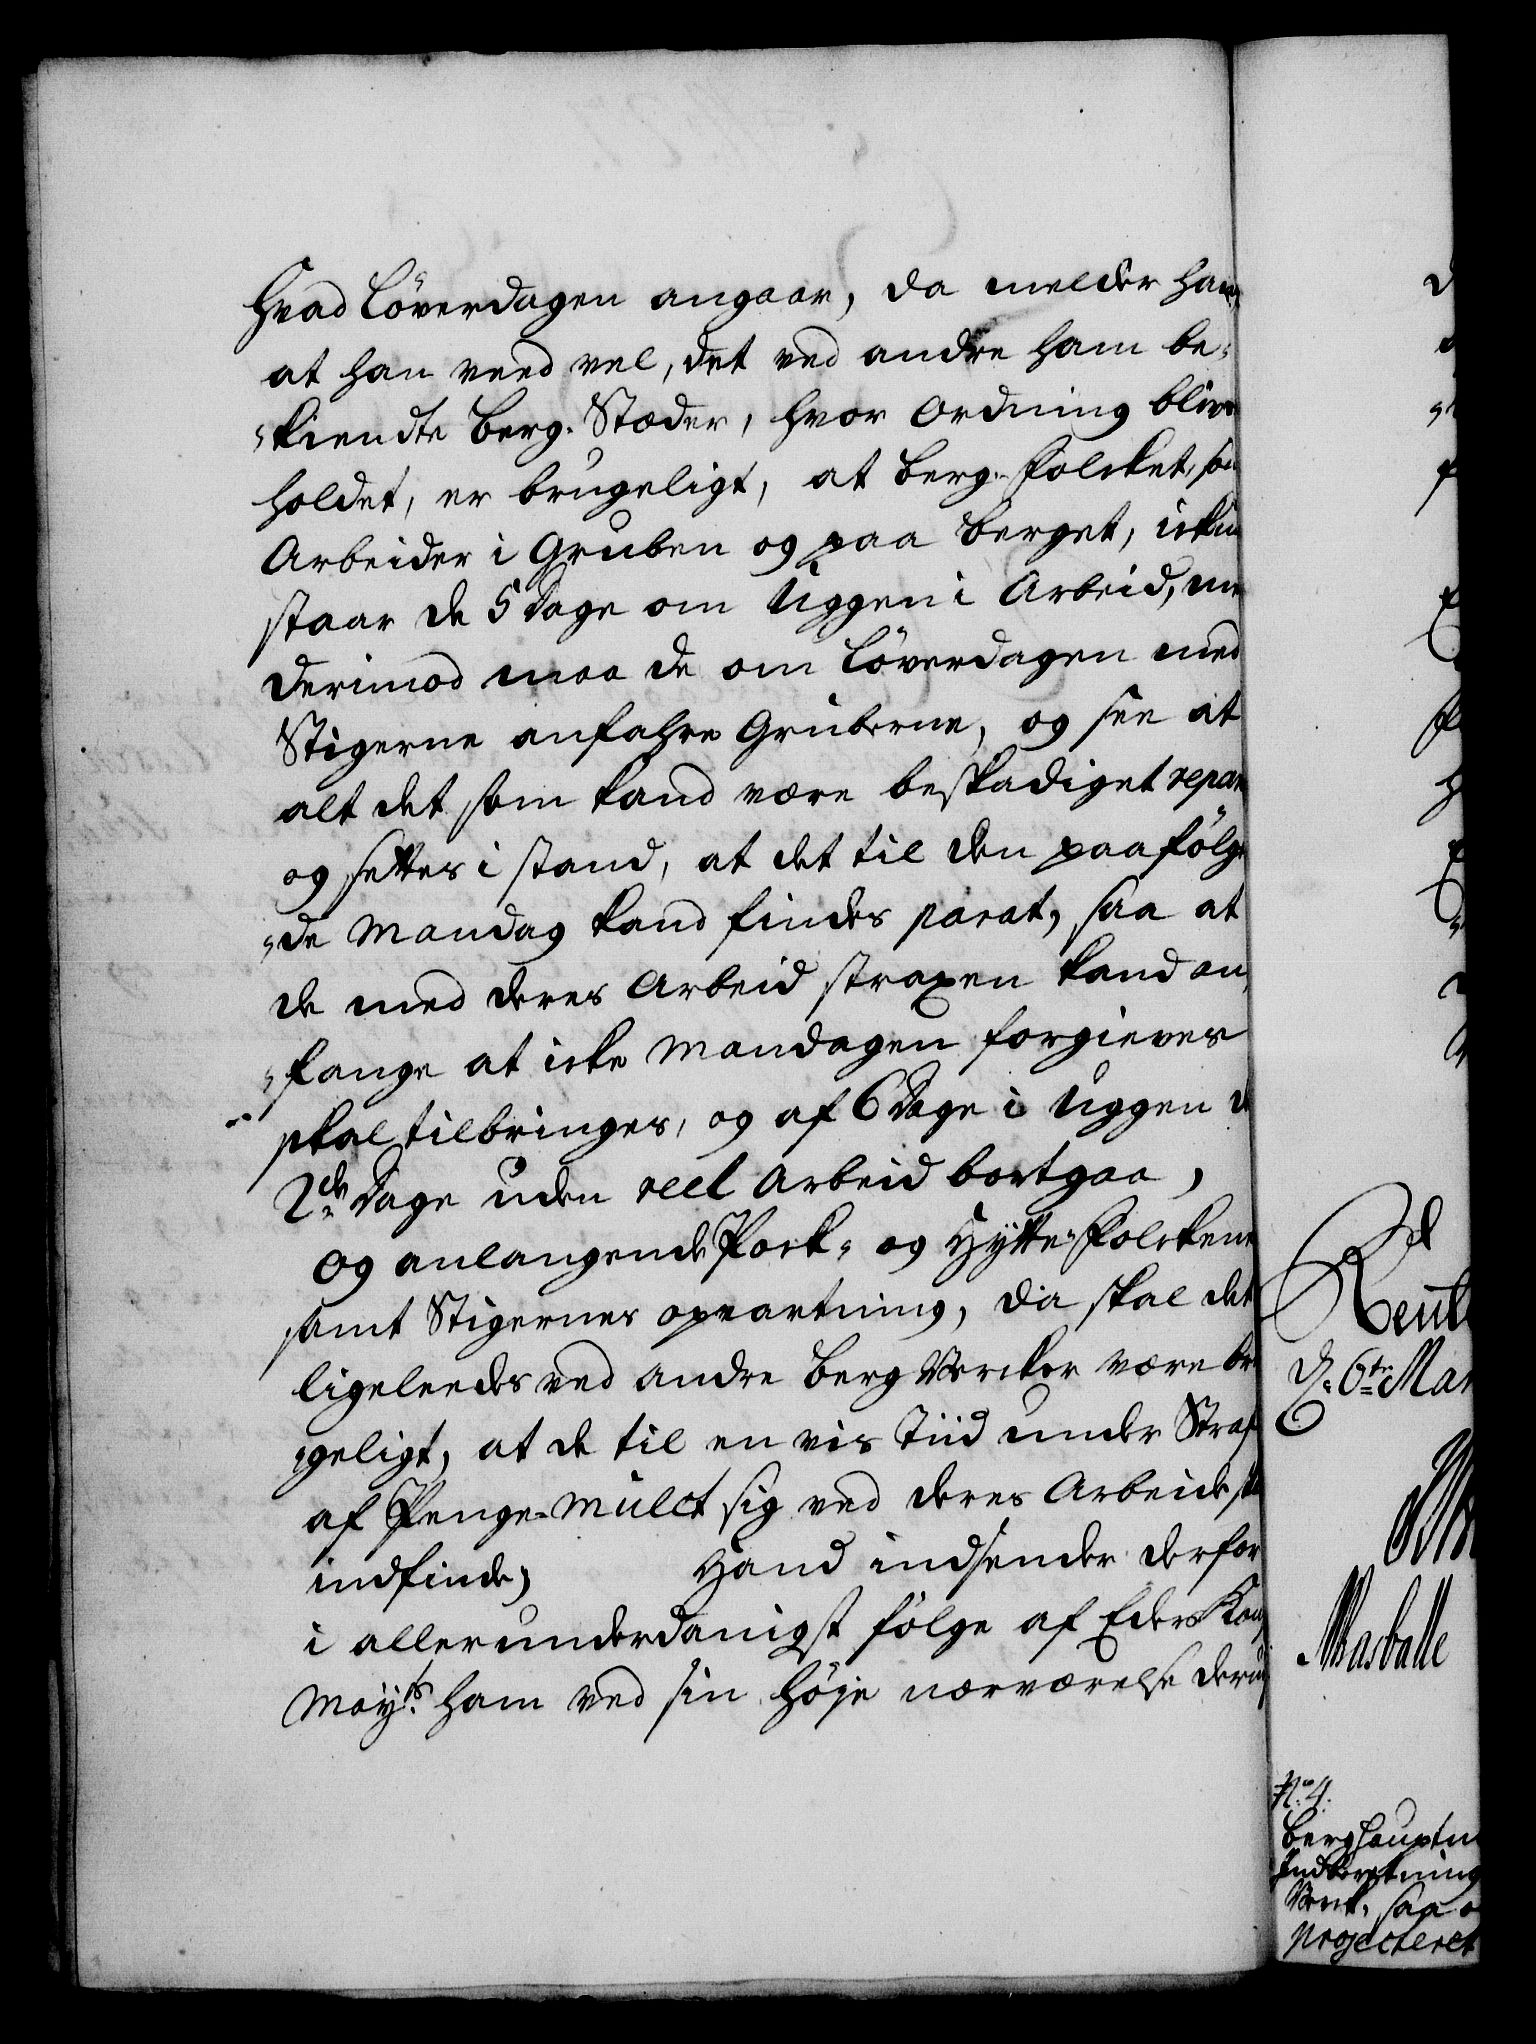 Hvad Löverdagen angaar, da melder han,
at han veed vel, det ved andre ham be-
kiendte Berg-Stæder, hvor Ordning blive
holdet, er brugeligt, at Berg-Folcket, som
Arbeider i Gruben og paa Berget, ickun
staar de 5 Dage om Uggen i Arbeid, men
derimod maa de om Löverdagen med
Stigerne anfahre Gruberne, og see at
alt det som kand være beskadiget repare
og settes i stand, at det til den paafölgen
de Mandag kand findes parat, saa at
de med deres Arbeid straxen kand an-
fange at icke Mandagen forgieves
skal tilbringes, og af 6 Dage i Uggen de
2de Dage uden reel Arbeid bortgaa,
Og anlangende Pock- og Hytte-Folckene
samt Stigernes opvartning, da skal det
ligeleedes ved andre Berg Vercker være bru
geligt, at de til en vis Tiid under Straf
af Penge-Mulct sig ved deres Arbeide ska
indfinde,  Hand indsender derfor
i allerunderdanigst fölge af Eders Kong
Mayts ham ved sin höje nærværelse derud
Rent
D. 6te Mar
Masballe
No 4.
Berghauptm
Indberetning
Verk, saa
projecteret